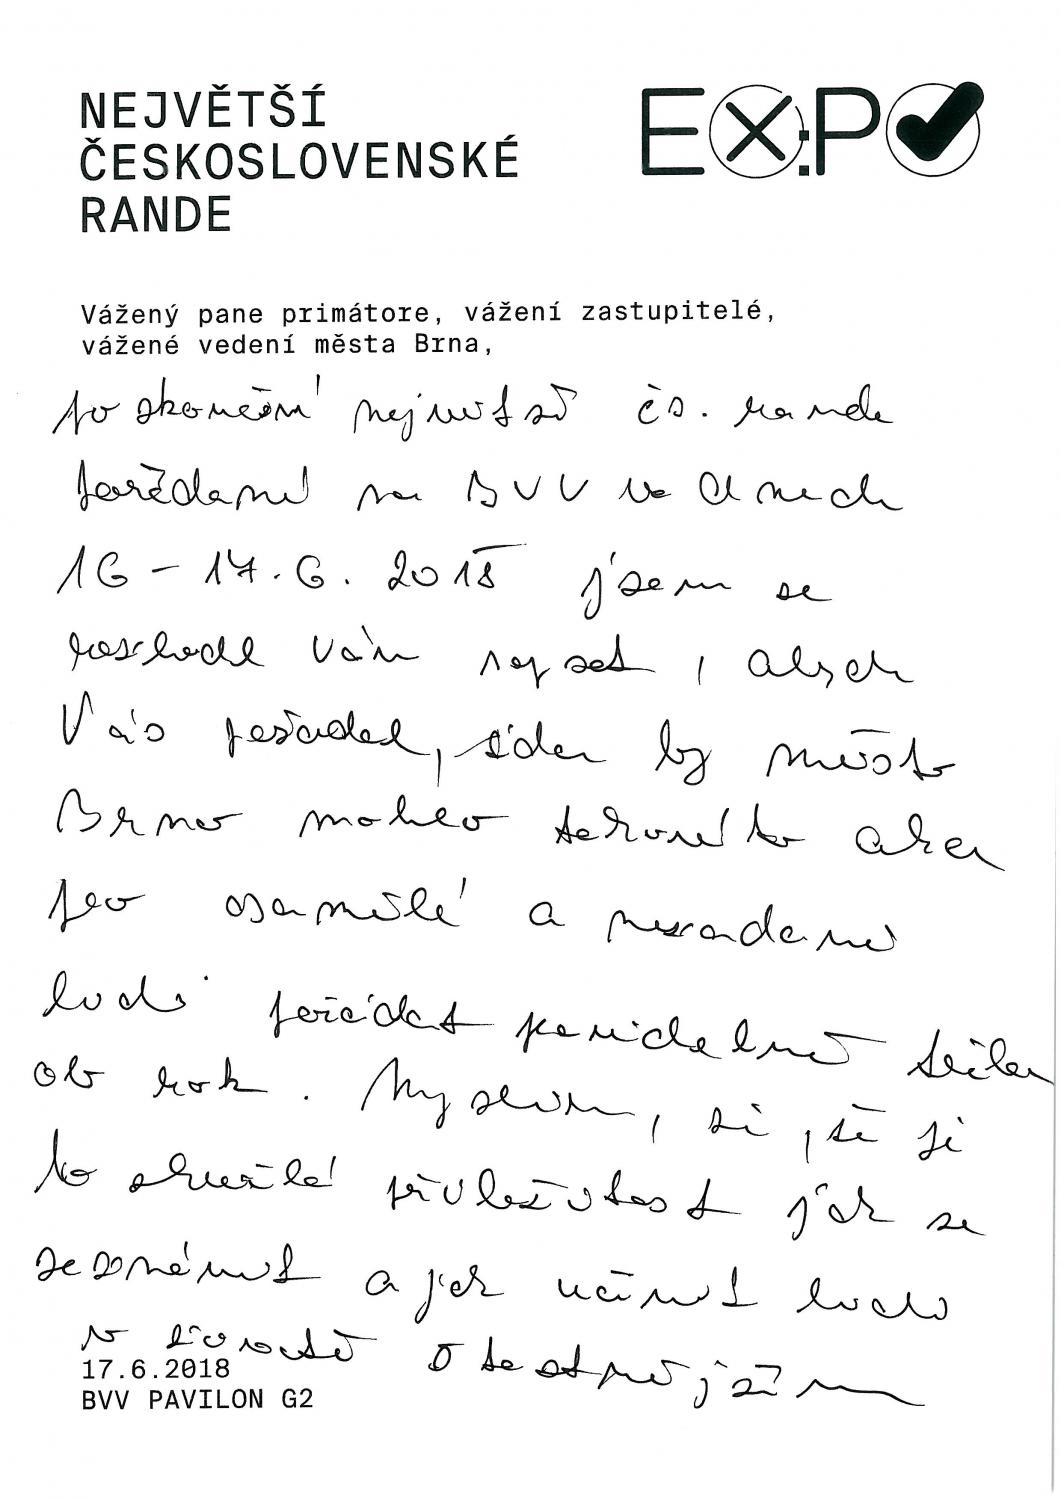 NEJVĚTŠÍ
ČESKOSLOVENSKÉ
RANDE
EX:PO
Vážený pane primátore, vážení zastupitelé,
vážené vedení města Brna,
po skončení největší čs. rande
pořádané na BVV ve dnech
16 - 17.6. 2018 jsem se
rozhodl vám napsat, abych
Vás požádal, zda by město
Brno mohlo takovéto akce
pro osamělé a nezadané
lidi pořádat pravidelně třeba
ob rok. Myslím, si, že je
to skvělá příležitost jak se
seznámit a jak učinit lidi
v životě šťastnějším
17.6.2018
BVV PAVILON G2